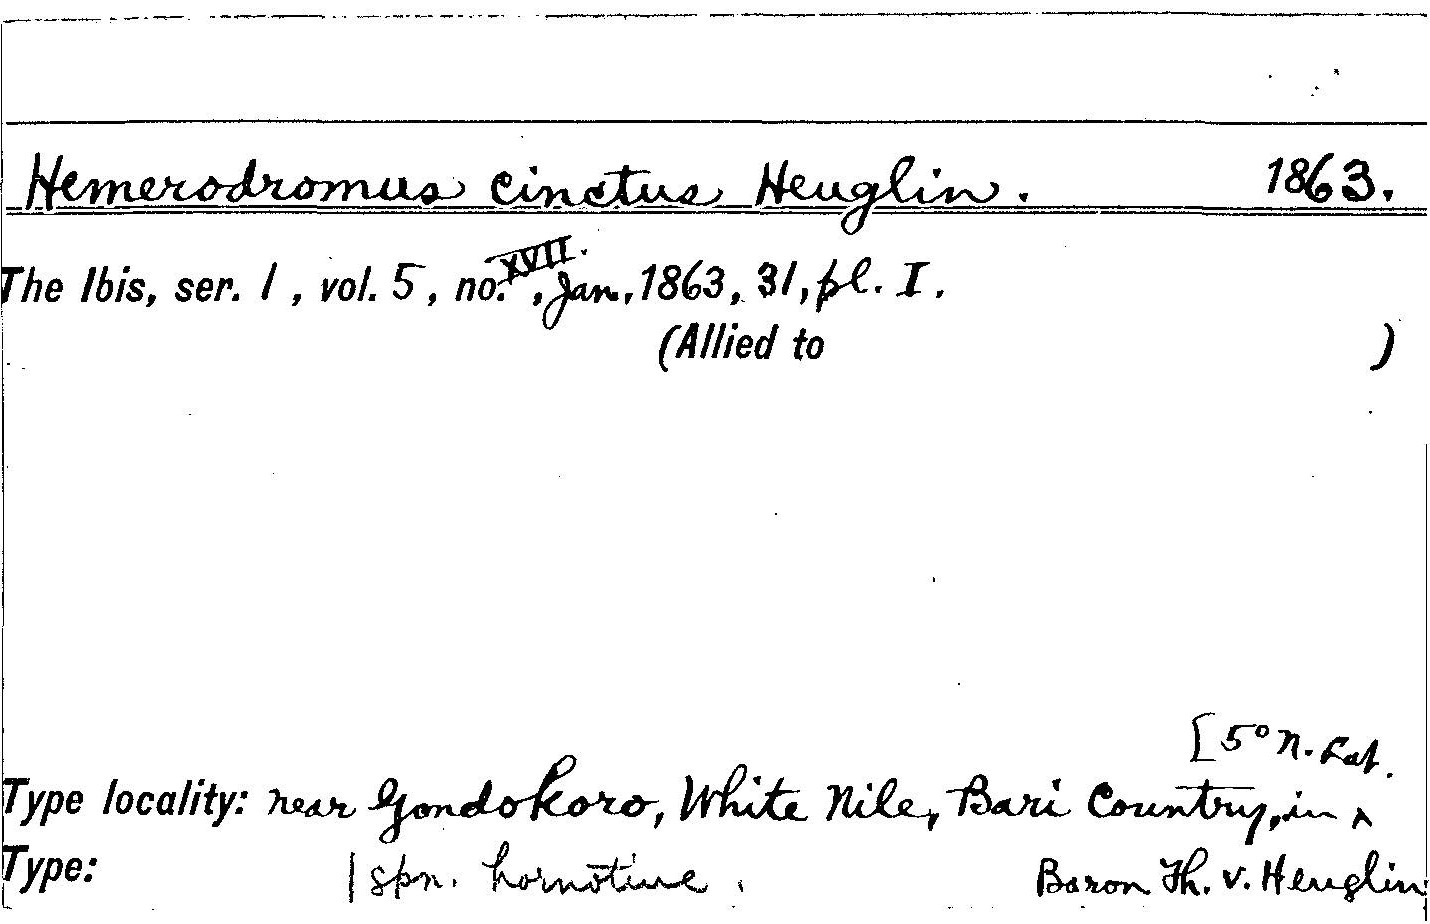 Hemerodromus cinctus Heuglin. 1863.
The Ibis, ser. 1, vol. 5, no. XVII., Jan., 1863, 31, pl. I.
(Allied to )
[5° N. Lat.
Type locality: near Gondokoro, White Nile, Bari Country, in ^
Type: 1 spn. hornotine. Baron Th. v. Heuglin